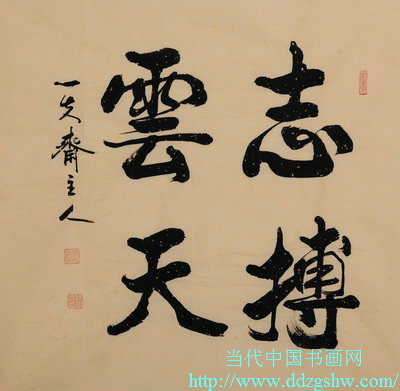 志搏
雲天
一天齋主人
当代中国书画网
http://www.ddzgshw.com